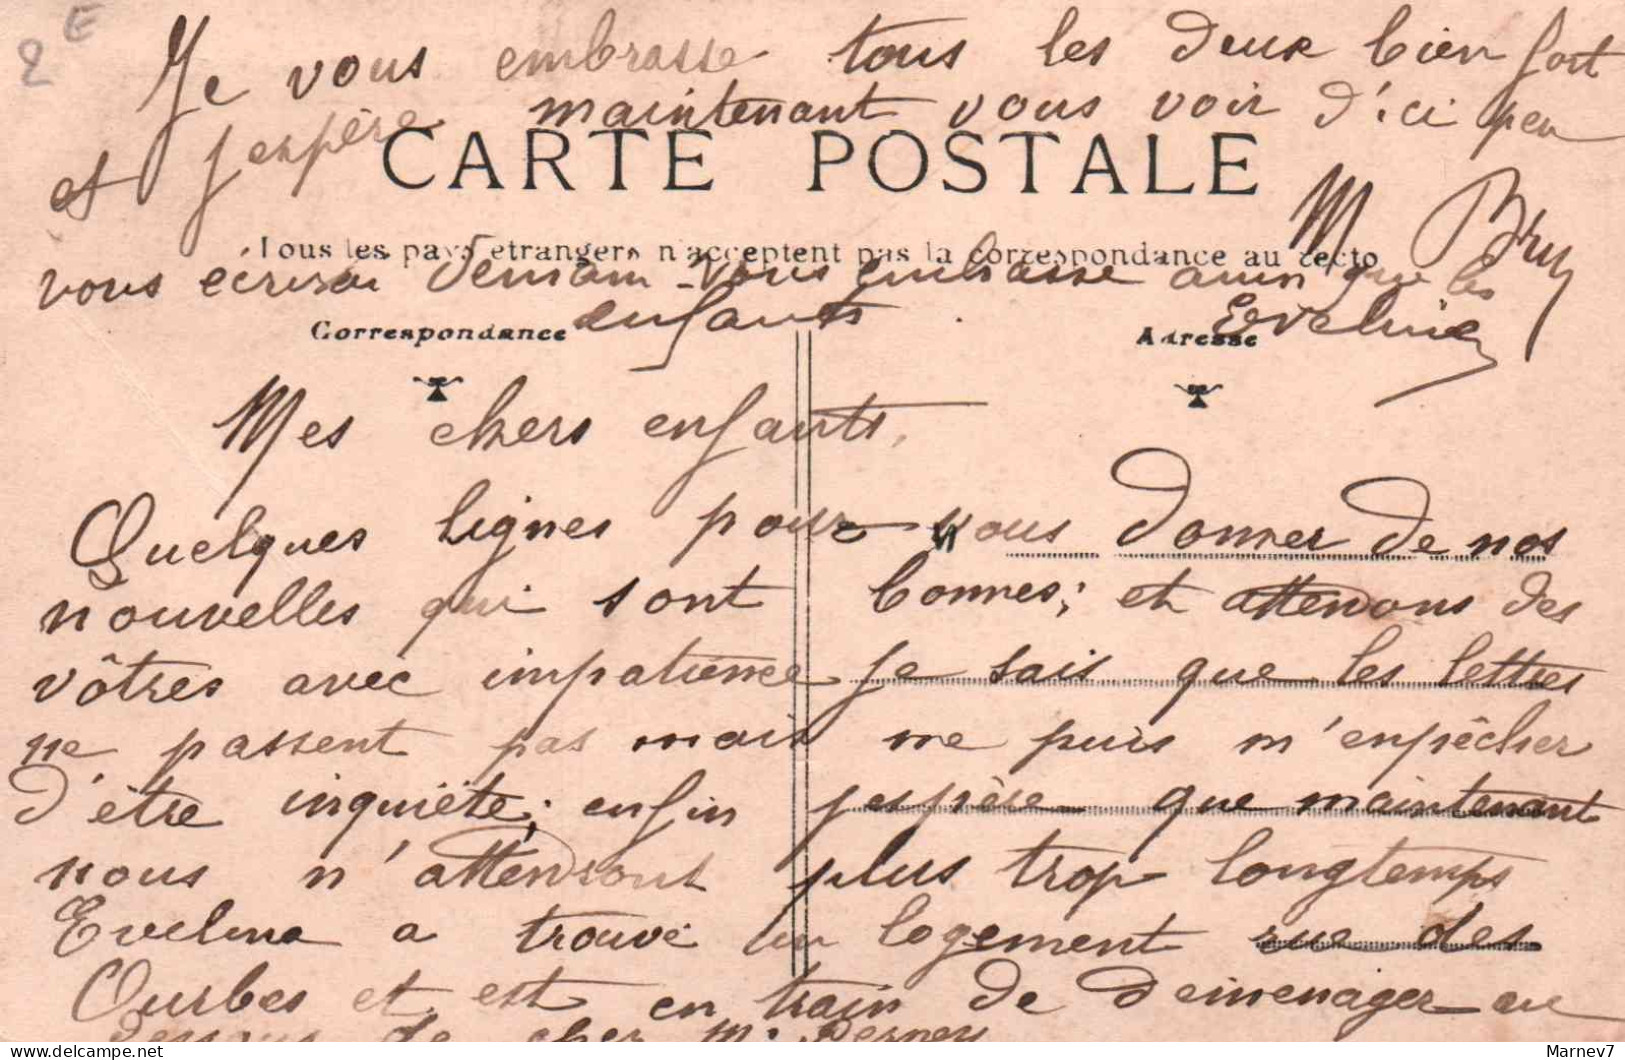 2E
Je vous embrasse tous les deux bien fort
et j'espère maintenant vous voir d'ici peu
CARTE POSTALE
M Bruy
Tous les pays étrangers n'acceptent pas la correspondance au recto
vous écrirai demain vous embrasse ainsi que les
enfants Eveline
Correspondance
Adresse
Mes chers enfants,
Quelques lignes pour vous donner de nos
nouvelles qui sont bonnes; et attendons des
vôtres avec impatience je sais que les lettres
ne passent pas mais ne puis m'enpêcher
d'être inquiète; enfin j'espère que maintenant
nous n'attendrons plus trop longtemps
Evelina a trouvé un logement rue des
Ourbes et est en train de demenager au
dessous de cher M.
Marnev7